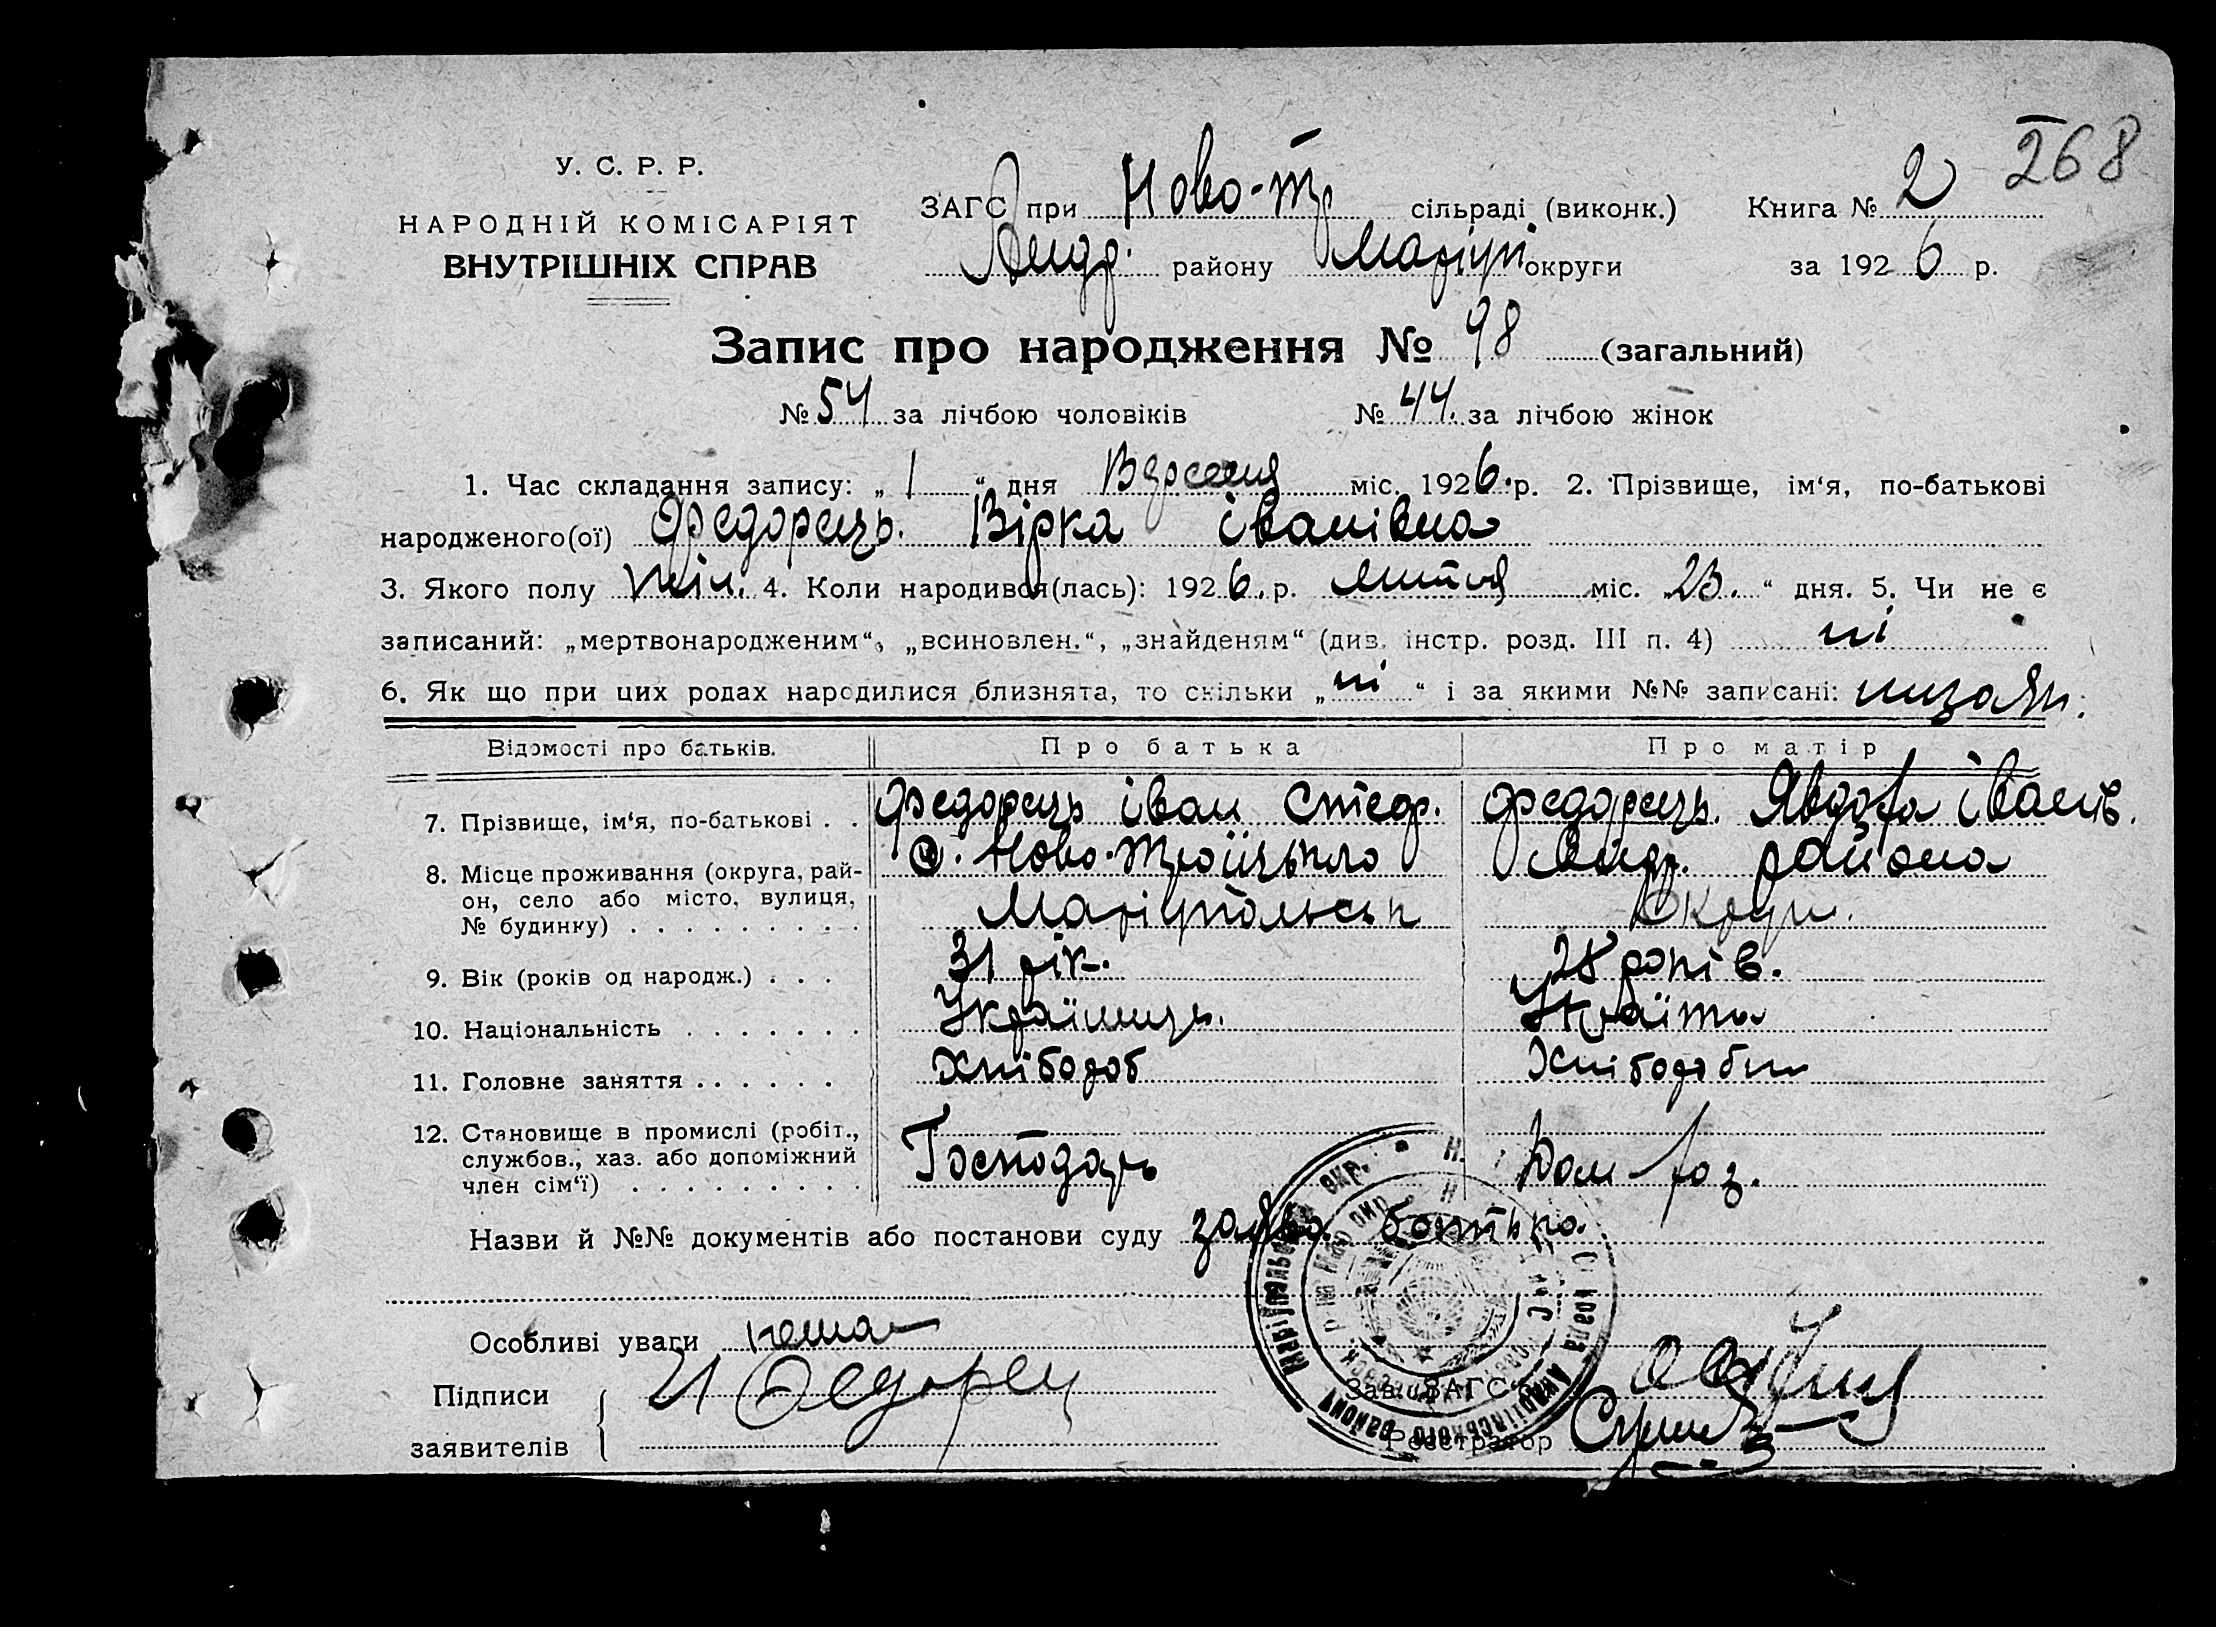 268
У. С. Р. Р.
НАРОДНІЙ КОМІСАРІЯТ
ВНУТРІШНІХ СПРАВ
ЗАГС при Ново-Тр сільраді (виконк.) Книга № 2
району Маріуп округи за 1926 р.
Запис про народження № 98 (загальний)
№ 54 за лічбою чоловіків № 44. за лічбою жінок
1. Час складання запису: „ 1 “ дня Вересня міс. 1926 р. 2. Прізвище, ім‘я, по-батькові
народженого(ої) Федорець. Вірка іванівна
3. Якого полу жін. 4. Коли народився(лась): 1926. р. липня міс. „23.“ дня. 5. Чи не є
записаний: „мертвонародженим“, „всиновлен.“, „знайденям“ (див. інстр. розд. III п. 4) ні
6. Як що при цих родах народилися близнята, то скільки „ ні “ і за якими №№ записані:
Відомості про батьків. Про батька Про матір
7. Прізвище, ім‘я, по-батькові . . Федорець іван Стеф. Федорець. Явдоха іванів.
8. Місце проживання (округа, рай- с. Ново-Троїцько района
он, село або місто, вулиця, Маріупольськ Округи.
№ будинку) . . . . . . . . .
9. Вік (років од народж.) . . . 31 рік. 28 років.
10. Національність . . . . . . . Українець. Українка
11. Головне заняття . . . . . . Хлібороб Хлібороб
12. Становище в промислі (робіт., Господарь Дом хоз.
службов., хаз. або допоміжний
член сім‘ї) . . . . . . . . .
Назви й №№ документів або постанови суду заява батька.
Особливі уваги нема
Підписи И Федорец Зав. ЗАГС‘ом
заявителів Реєстратор